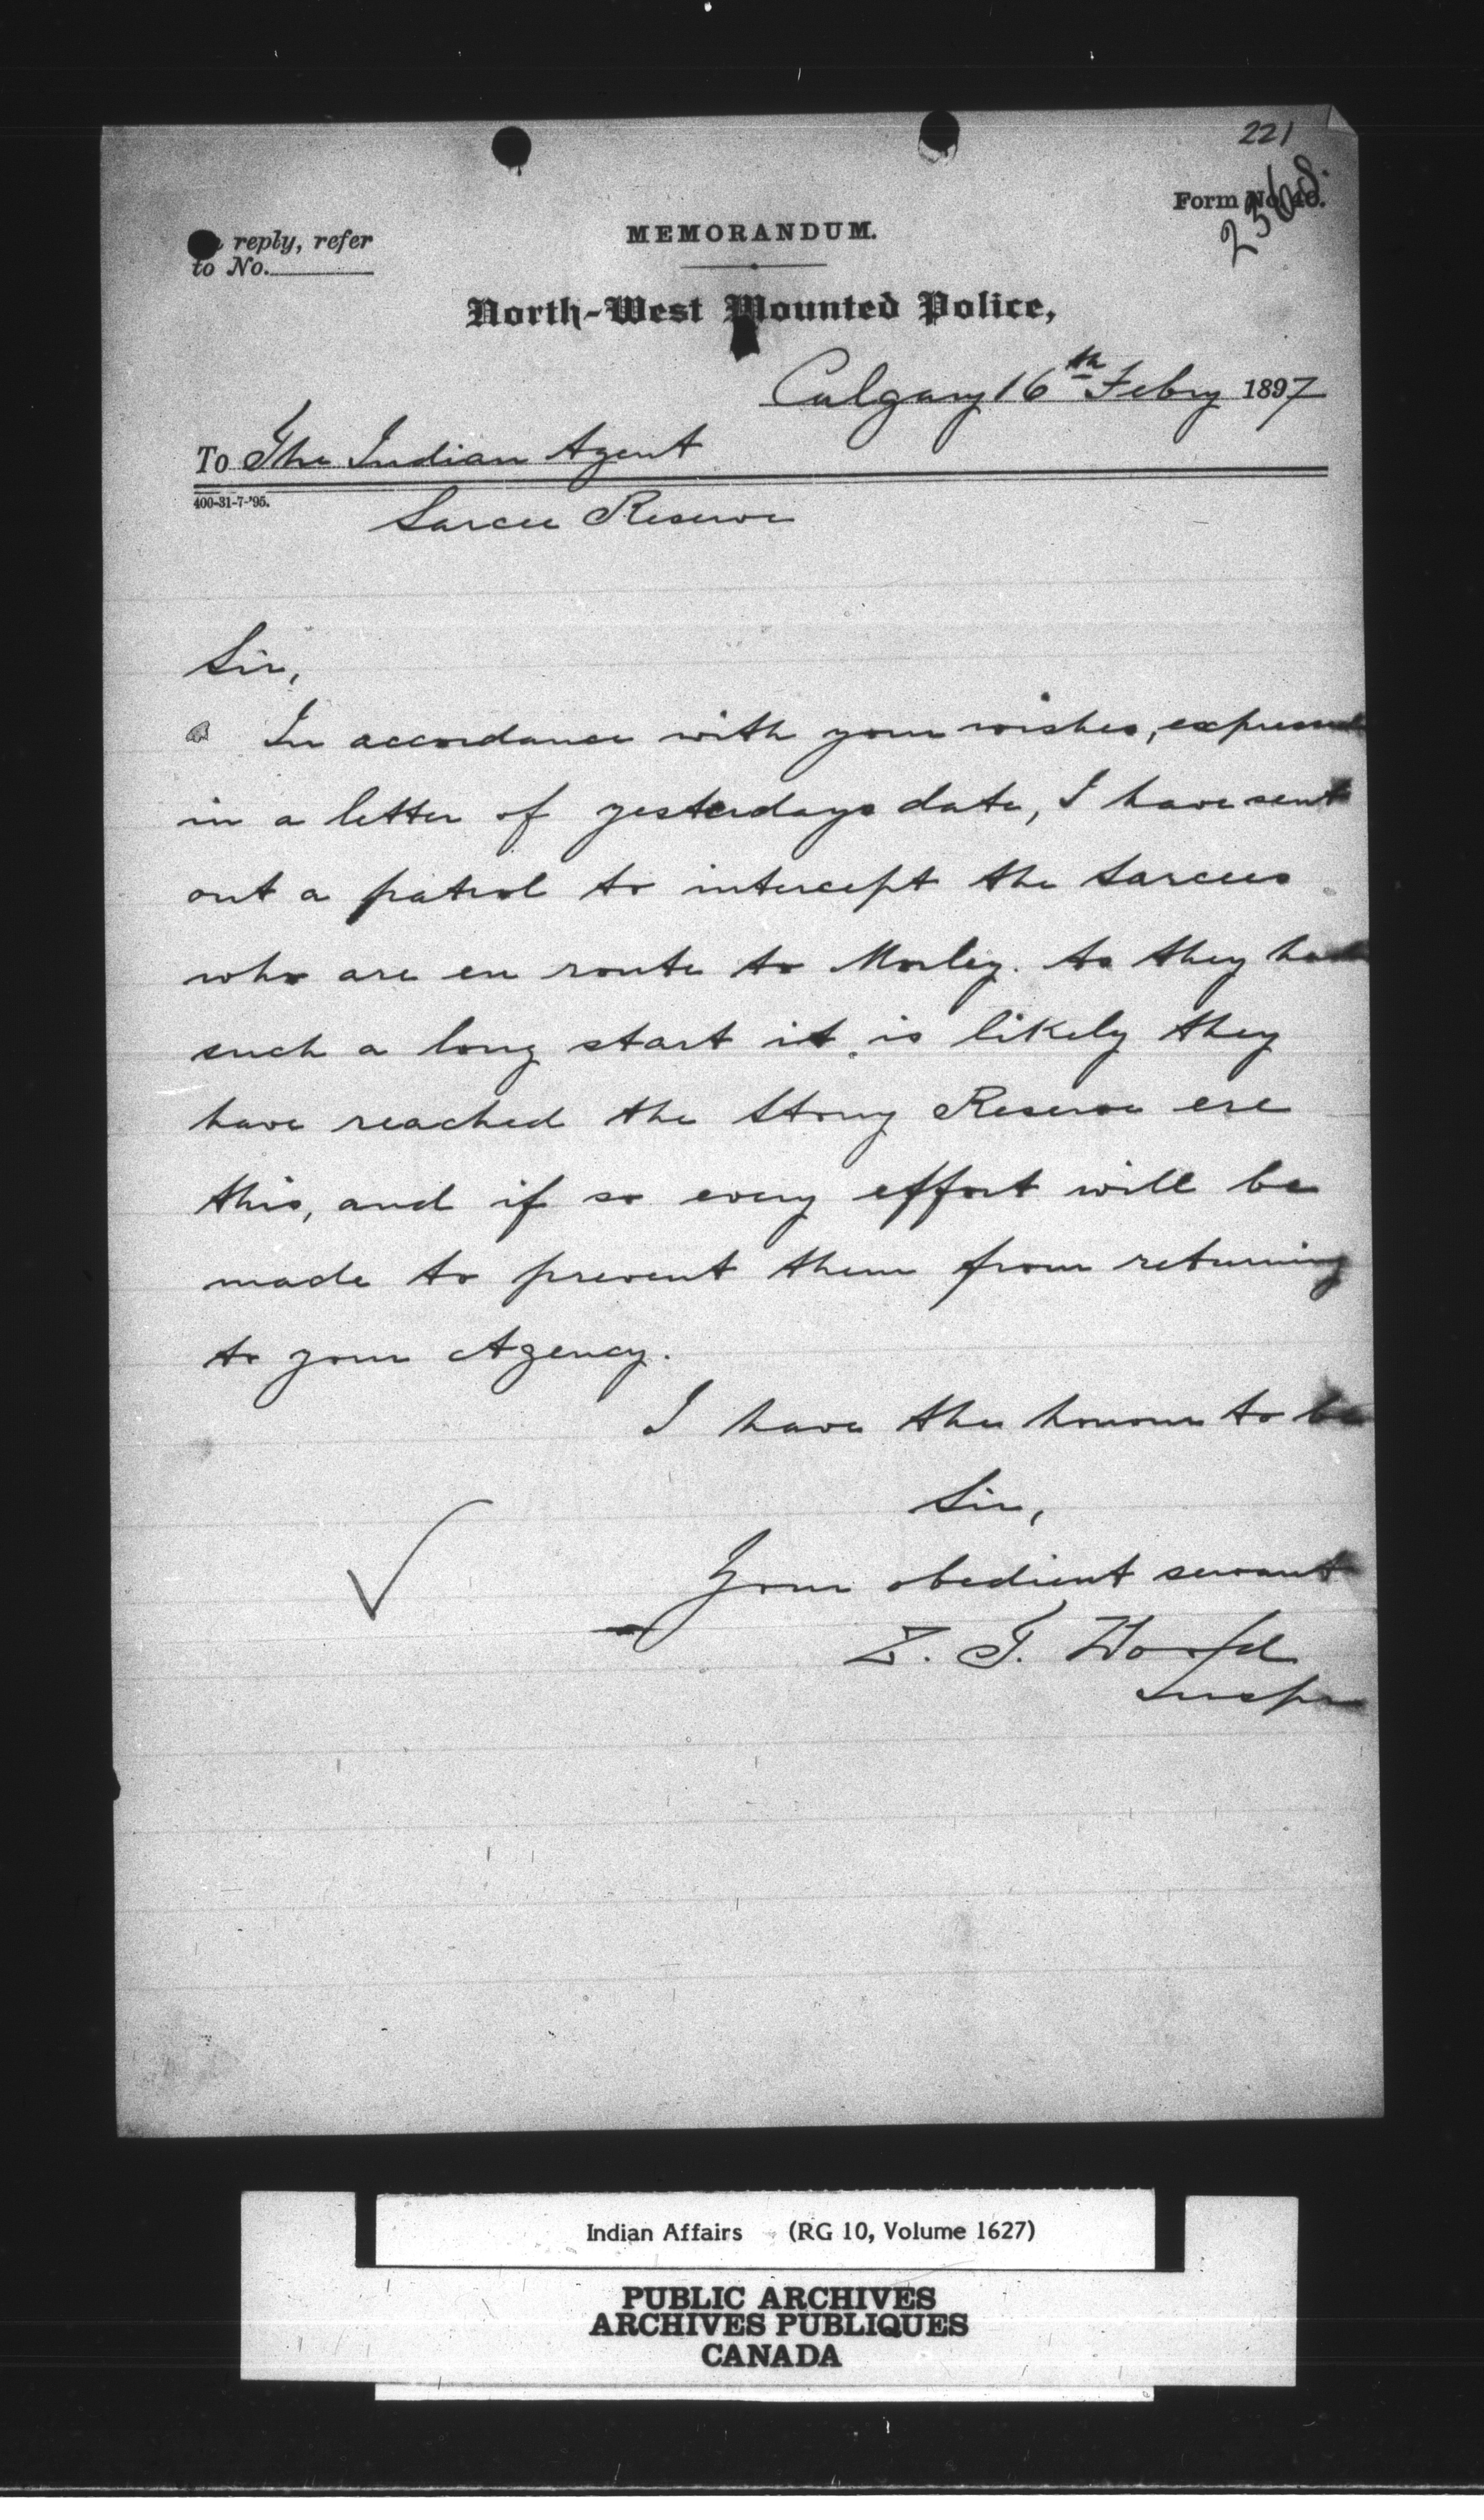 221
2368.
Form No. 40.
reply, refer
to No.
MEMORANDUM.
North-West Mounted Police,
Calgary 16th Febry 1897
To The Indian Agent
400-31-7-'95.
Sarcee Reserve
Sir,
In accordance with your wishes, expressed
in a letter of yesterdays date, I have sent
out a patrol to intercept the Sarcees
who are en route to Morley. As they had
such a long start it is likely they
have reached the Stony Reserve ere
this, and if so every effort will be
made to prevent them from returning
to your Agency.
I have the honour to be
Sir,
Your obedient servant
Z. T. Wood
Inspr
Indian Affairs (RG 10, Volume 1627)
PUBLIC ARCHIVES
ARCHIVES PUBLIQUES
CANADA